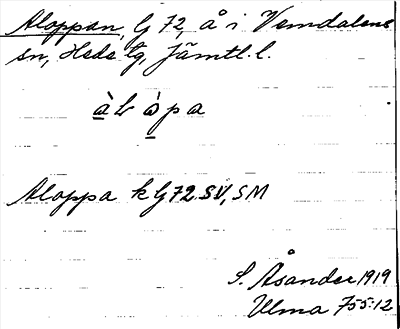 Aloppan, G 72, å i Vemdalens
sn, Hede tg, Jämtl. l.
àlòpa
Aloppa k G 72 SV, SM
S. Åsander 1919
Ulma 755:12